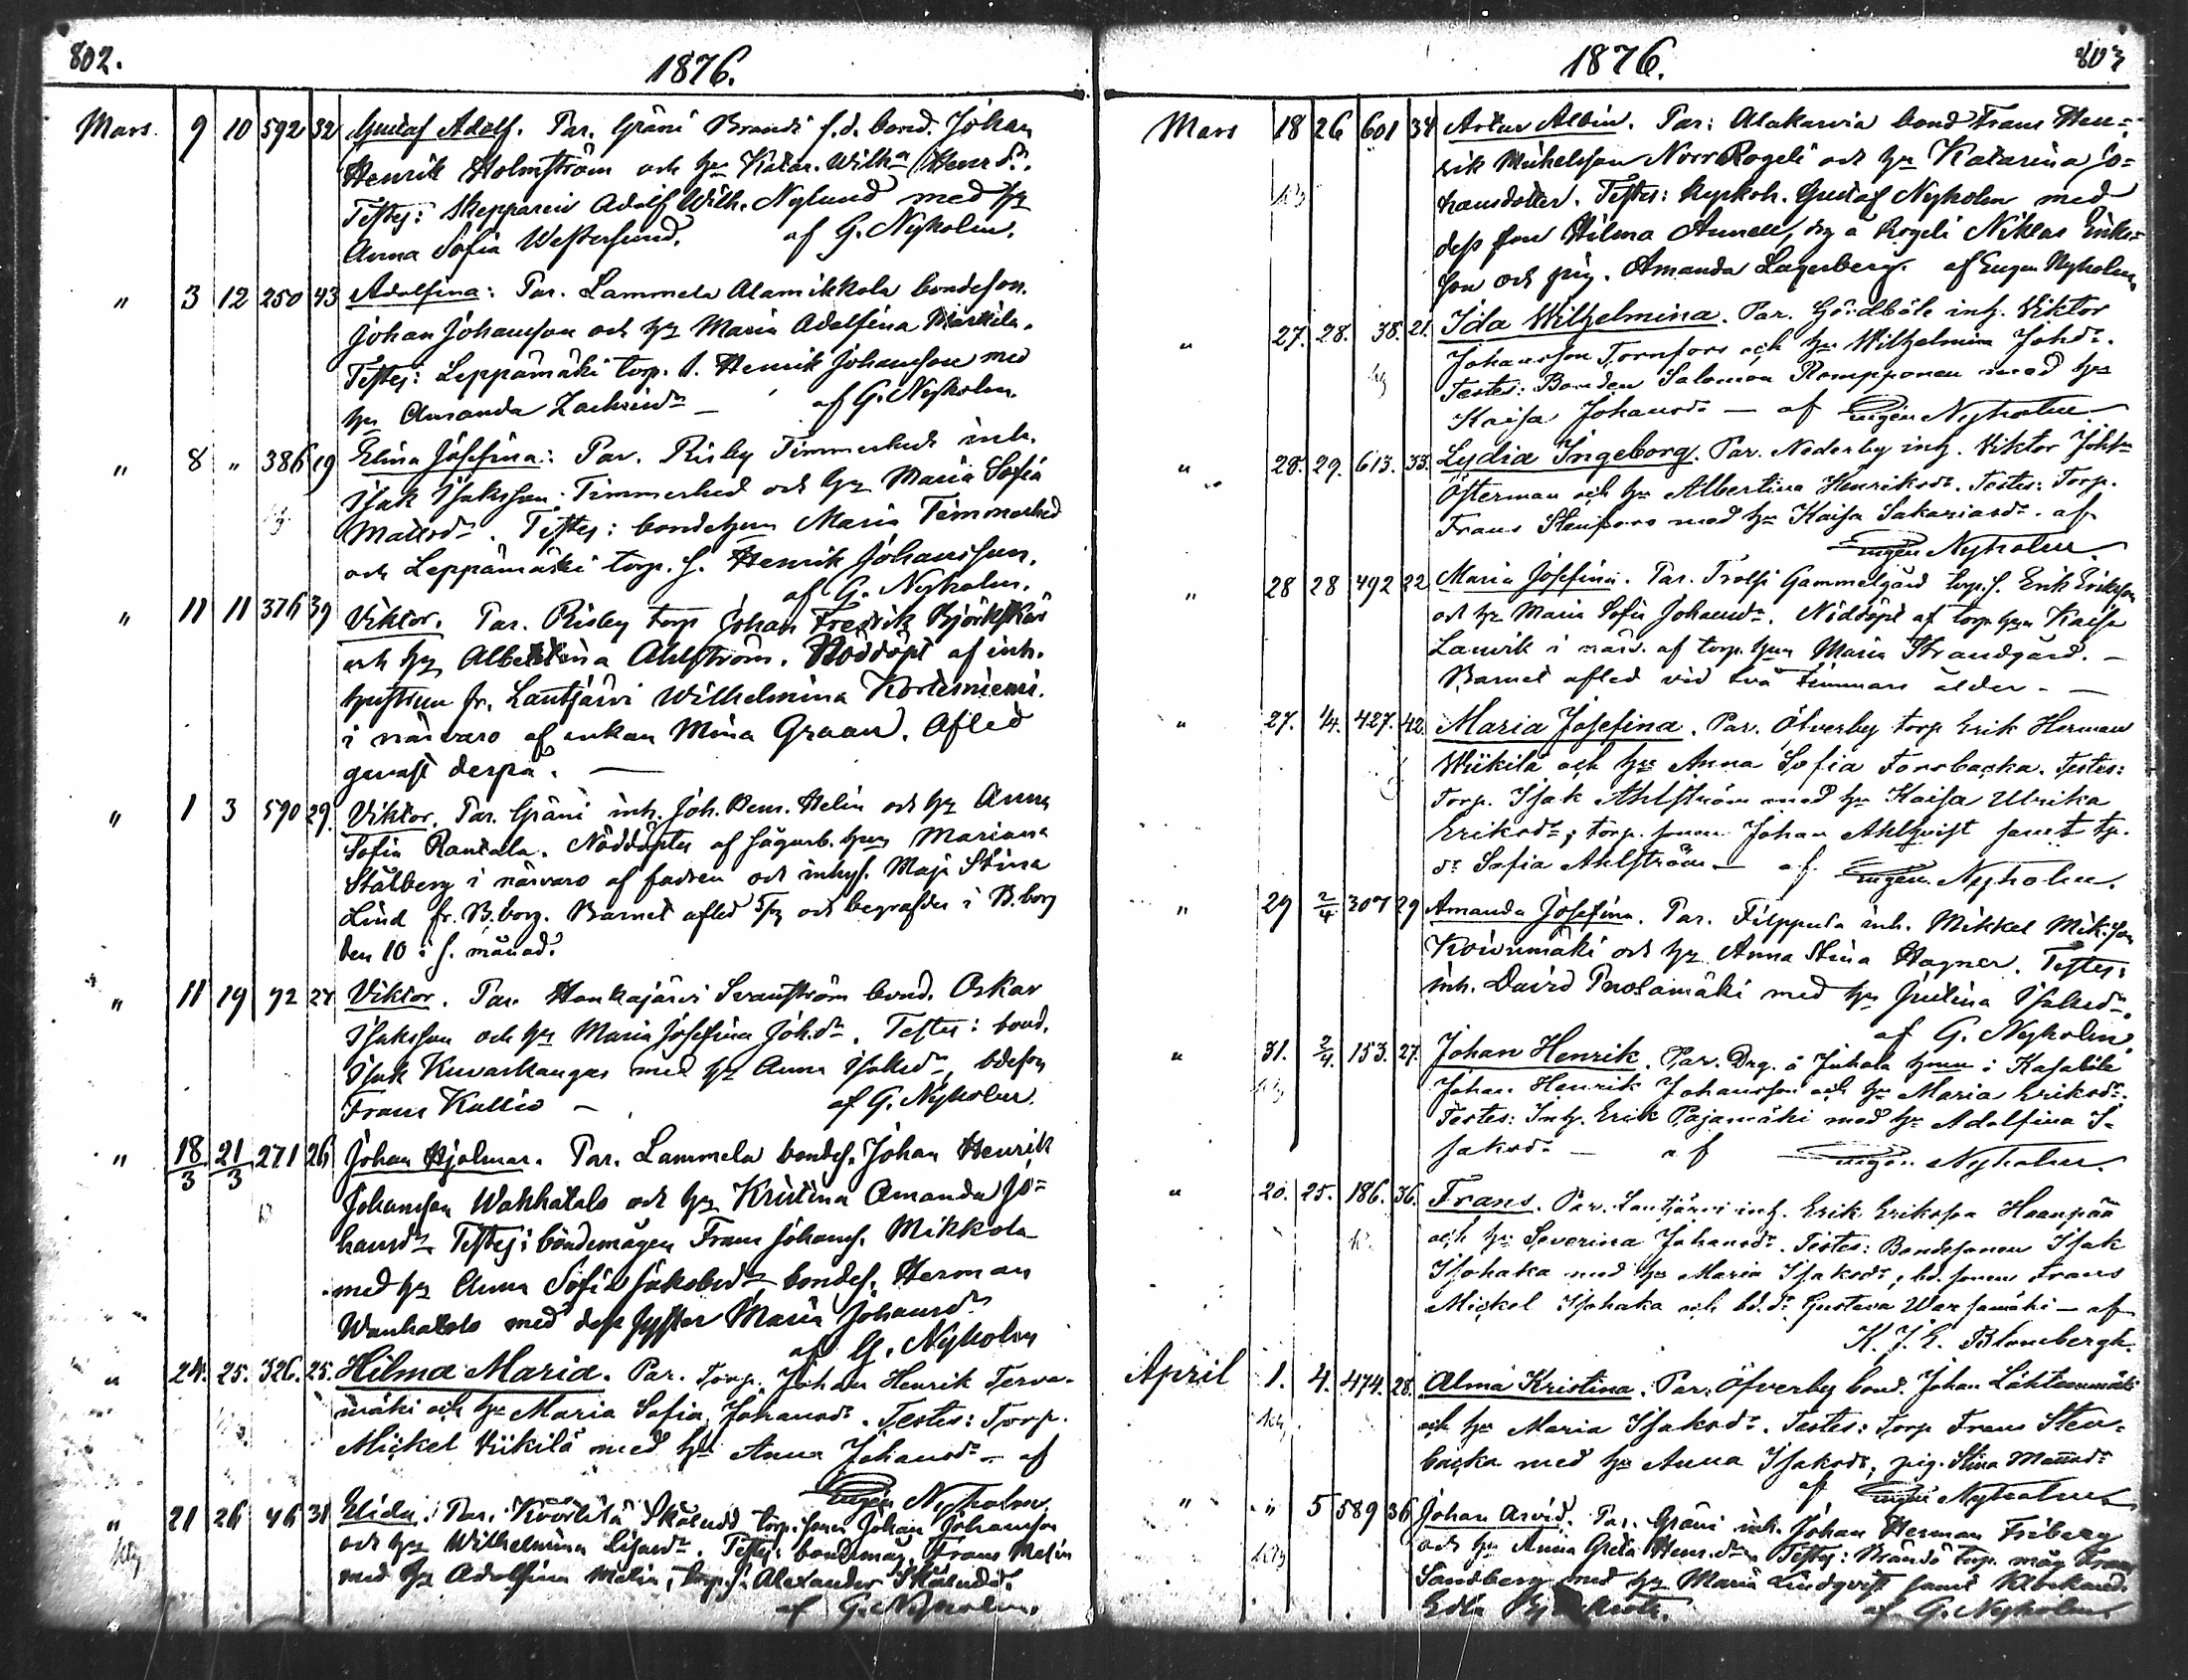 802.
1876.
Mars. 9 10 592 32 Gustaf Adolf. Par. Gräni Brandt f.d. bond. Johan
Henrik Holmström och hu Katar. Wilha Henrdr.
Testes: Skepparen Adolf Wilh. Nylund med hu
Anna Sofia Westerlund. af G. Nyholm.
" 3 12 250 43 Adolfina: Par. Lammela Alamikkola bondeson.
Johan Johansson och hu Maria Adolfina Markila.
Testes: Leppämäki torp. s. Henrik Johansson med
hu Amanda Zachrisdr — af G. Nyholm.
" 8 " 386 19 Elina Josefina: Par. Risby Timmerhed inh.
Isak Isaksson Timmerhed och hu Maria Sofia
Mattsdr. Testes: bondehun Maria Timmerhed
och Leppämäki torp. s. Henrik Johansson.
af G. Nyholm.
" 11 11 376 39 Viktor. Par. Risby torp Johan Fredrik Björkskär
och hu Albertina Ahlström. Nöddöpt af inh.
hustrun fr. Lautjärvi Wilhelmina Kortesniemi
i närvaro af enkan Mina Graan. Afled
genast derpå. —
" 1 3 590 29. Viktor. Par. Gräni inh. Joh. Henr. Helin och hu Anna
Sofia Rantala. Nöddöptes af sågarb. hun Mariana
Stålberg i närvaro af fadren och inhys. Maja Stina
Lind fr. B.borg. Barnet afled 5/3 och begrafdes i B.borg
den 10 i s. månad.
" 11 19 92 24 Viktor. Par. Honkajärvi Svanström bond. Oskar
Isaksson och hu Maria Josefina Joh.dr. Testes: bond.
Isak Kuvaskangas med hu Anna Isaksdr, bdeson
Frans Kallio — af G. Nyholm.
" 18/3 21/3 271 26 Johan Hjalmar. Par. Lammela bondes. Johan Henrik
Johansson Wanhatalo och hu Kristina Amanda Jo=
hansdr Testes: bondemågen Frans Johans. Mikkola
med hu Anna Sofia Jakobsdr bondes. Herman
Wanhatalo med dess syster Maria Johansdr
af G. Nyholm
" 24. 25. 326. 25. Hilma Maria. Par. Torp. Johan Henrik Terva-
mäki och hu Maria Sofia Johansdr. Testes: Torp.
Mickel Viikilä med hu Anna Johansdr — af
Eugen Nyholm
" 21 26 46 31 Elida. Par. Skäludd torp. sonen Johan Johansson
och hu Wilhelmina Lisasdr. Testes: bondemåg. Frans Melin
med hu Adolfina Melin, torp. s. Alexander Skäludd.
af G. Nyholm.
1876.
803
Mars 18 26 601 34 Artur Albin. Par: Alakarvia bond Frans Hen=
rik Mickelsson Norr Rogeli och hu Katarina Jo=
hansdotter. Testes: kyrkoh. Gustaf Nyholm med
dess fru Hilma Anneli, drg å Rogeli Niklas Eriks=
son och pig. Amanda Lagerberg. af Eugen Nyholm
" 27. 28. 38. 21. Ida Wilhelmina. Par. Gårdböle inh. Viktor
Johansson Tornfors och hu Wilhelmina Johdr.
Testes: Bonden Salomon Rompponen med hu
Kaisa Johansdr — af Eugen Nyholm
" 28. 29. 613. 33. Lydia Ingeborg. Par. Nederby inh. Viktor Johsn
Österman och hu Albertina Henriksdr. Testes: Torp.
Frans Stenfors med hu Kaisa Sakariasdr. af
Eugen Nyholm.
" 28 28 492 22 Maria Josefina. Par. Trolsi Gammelgård torp. s. Erik Eriksson
och hu Maria Sofia Johansdr. Nöddöpt af torp hun Kaisa
Lanvik i närv. af torp. hun Maria Strandgård. —
Barnet afled vid två timmars ålder. —
" 27. 1/4. 427. 42. Maria Josefina. Par. Öfverby torp Erik Herman
Wiikilä och hu Anna Sofia Forsbacka. Testes:
Torp. Isak Ahlström med hu Kaisa Ulrika
Eriksdr; torp. sonen Johan Ahlqvist samt tp.
dr Sofia Ahlström — af Eugen Nyholm.
" 29 2/4 307 29 Amanda Josefina. Par. Filppula inh. Mikkel Mik.son
Koivumäki och hu Anna Stina Hagner. Testes:
inh. David Puosamäki med hu Justina Isaksdr.
af G. Nyholm.
" 31. 2/4. 153. 27. Johan Henrik. Par. Drg. å Juhola hman i Kasaböle
Johan Henrik Johansson och hu Maria Eriksdr.
Testes: Inh. Erik Pajamäki med hu Adolfina I-
saksdr — af Eugen Nyholm.
" 20. 25. 186. 36. Frans. Par. Lautjärvi inh. Erik Eriksson Haanpää
och hu Severina Johansdr. Testes: Bondesonen Isak
Isohaka med hu Maria Isaksdr, bd. sonen Frans
Mickel Isohaka och bd. dr Gustava Warsamäki — af
K. J. E. Blombergh.
April 1. 4. 474. 28. Alma Kristina. Par. Öfverby bond. Johan Lähteenmäki
och hu Maria Isaksdr. Testes: Torp Frans Sten-
backa med hu Anna Isaksdr, pig. Stina
af Eugen Nyholm
" " 5 589 36 Johan Arvid. Par. Gräni inh. Johan Herman Friberg
och hu Anna Greta Henr.dr. Testes: Brändö torp. måg Frans
Sandberg med hu Maria Lindqvist samt
Edla af G. Nyholm